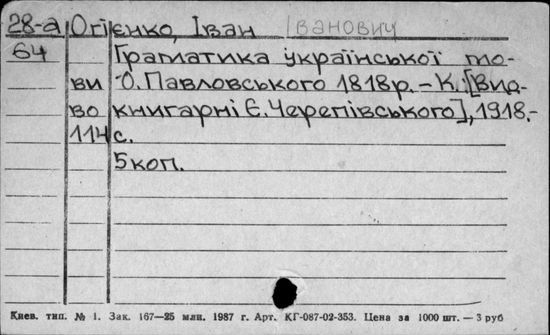 28-а Огієнко, Іван Іванович
64 Граматика української мо-
ви О. Павловського 1818р. – К.: [Вид-
во книгарні Є. Черепівського], 1918.-
114 с.
5 коп.
Киев. тип. № 1. Зак. 167—25 млн. 1987 г. Арт. КГ-087-02-353. Цена за 1000 шт. — 3 руб